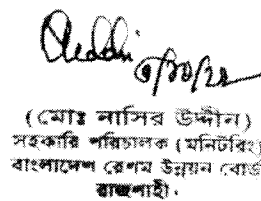 (মোঃ নাসির উদ্দীন)
সহকারি পরিচালক (মনিটরিং)
বাংলাদেশ রেশম উন্নয়ন বোর্ড
রাজশাহী।